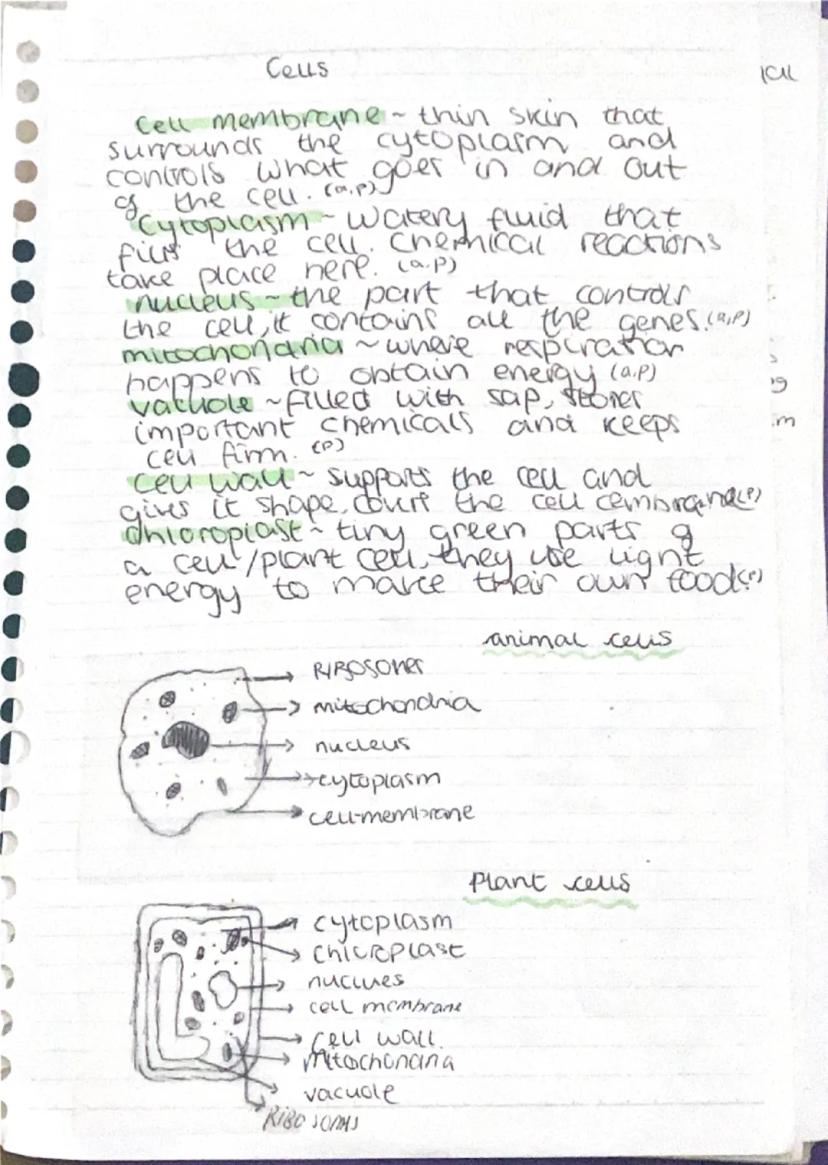 Cells
ical
Cell membrane ~ thin skin that
surrounds the cytoplasm and
controls what goes in and out
of the cell. (a,p)
Cytoplasm ~ Watery fluid that
fills the cell. Chemical reactions
take place here. (a,p)
nucleus ~ the part that controls
the cell, it contains all the genes. (a,p)
mitochondria ~ where respiration
happens to obtain energy (a,p)
vacuole ~ filled with sap, stores
important chemicals and keeps
cell firm. (p)
cell wall ~ supports the cell and
gives it shape, court the cell cembrane (p)
chloroplast ~ tiny green parts of
a cell/plant cell, they use light
energy to make their own food. (p)
animal cells
RIBOSOMES
mitochondria
nucleus
cytoplasm
cell-membrane
Plant cells
cytoplasm
chloroplast
nuclues
cell membrane
Cell wall.
Mitochondria
vacuole
RIBOSOMS